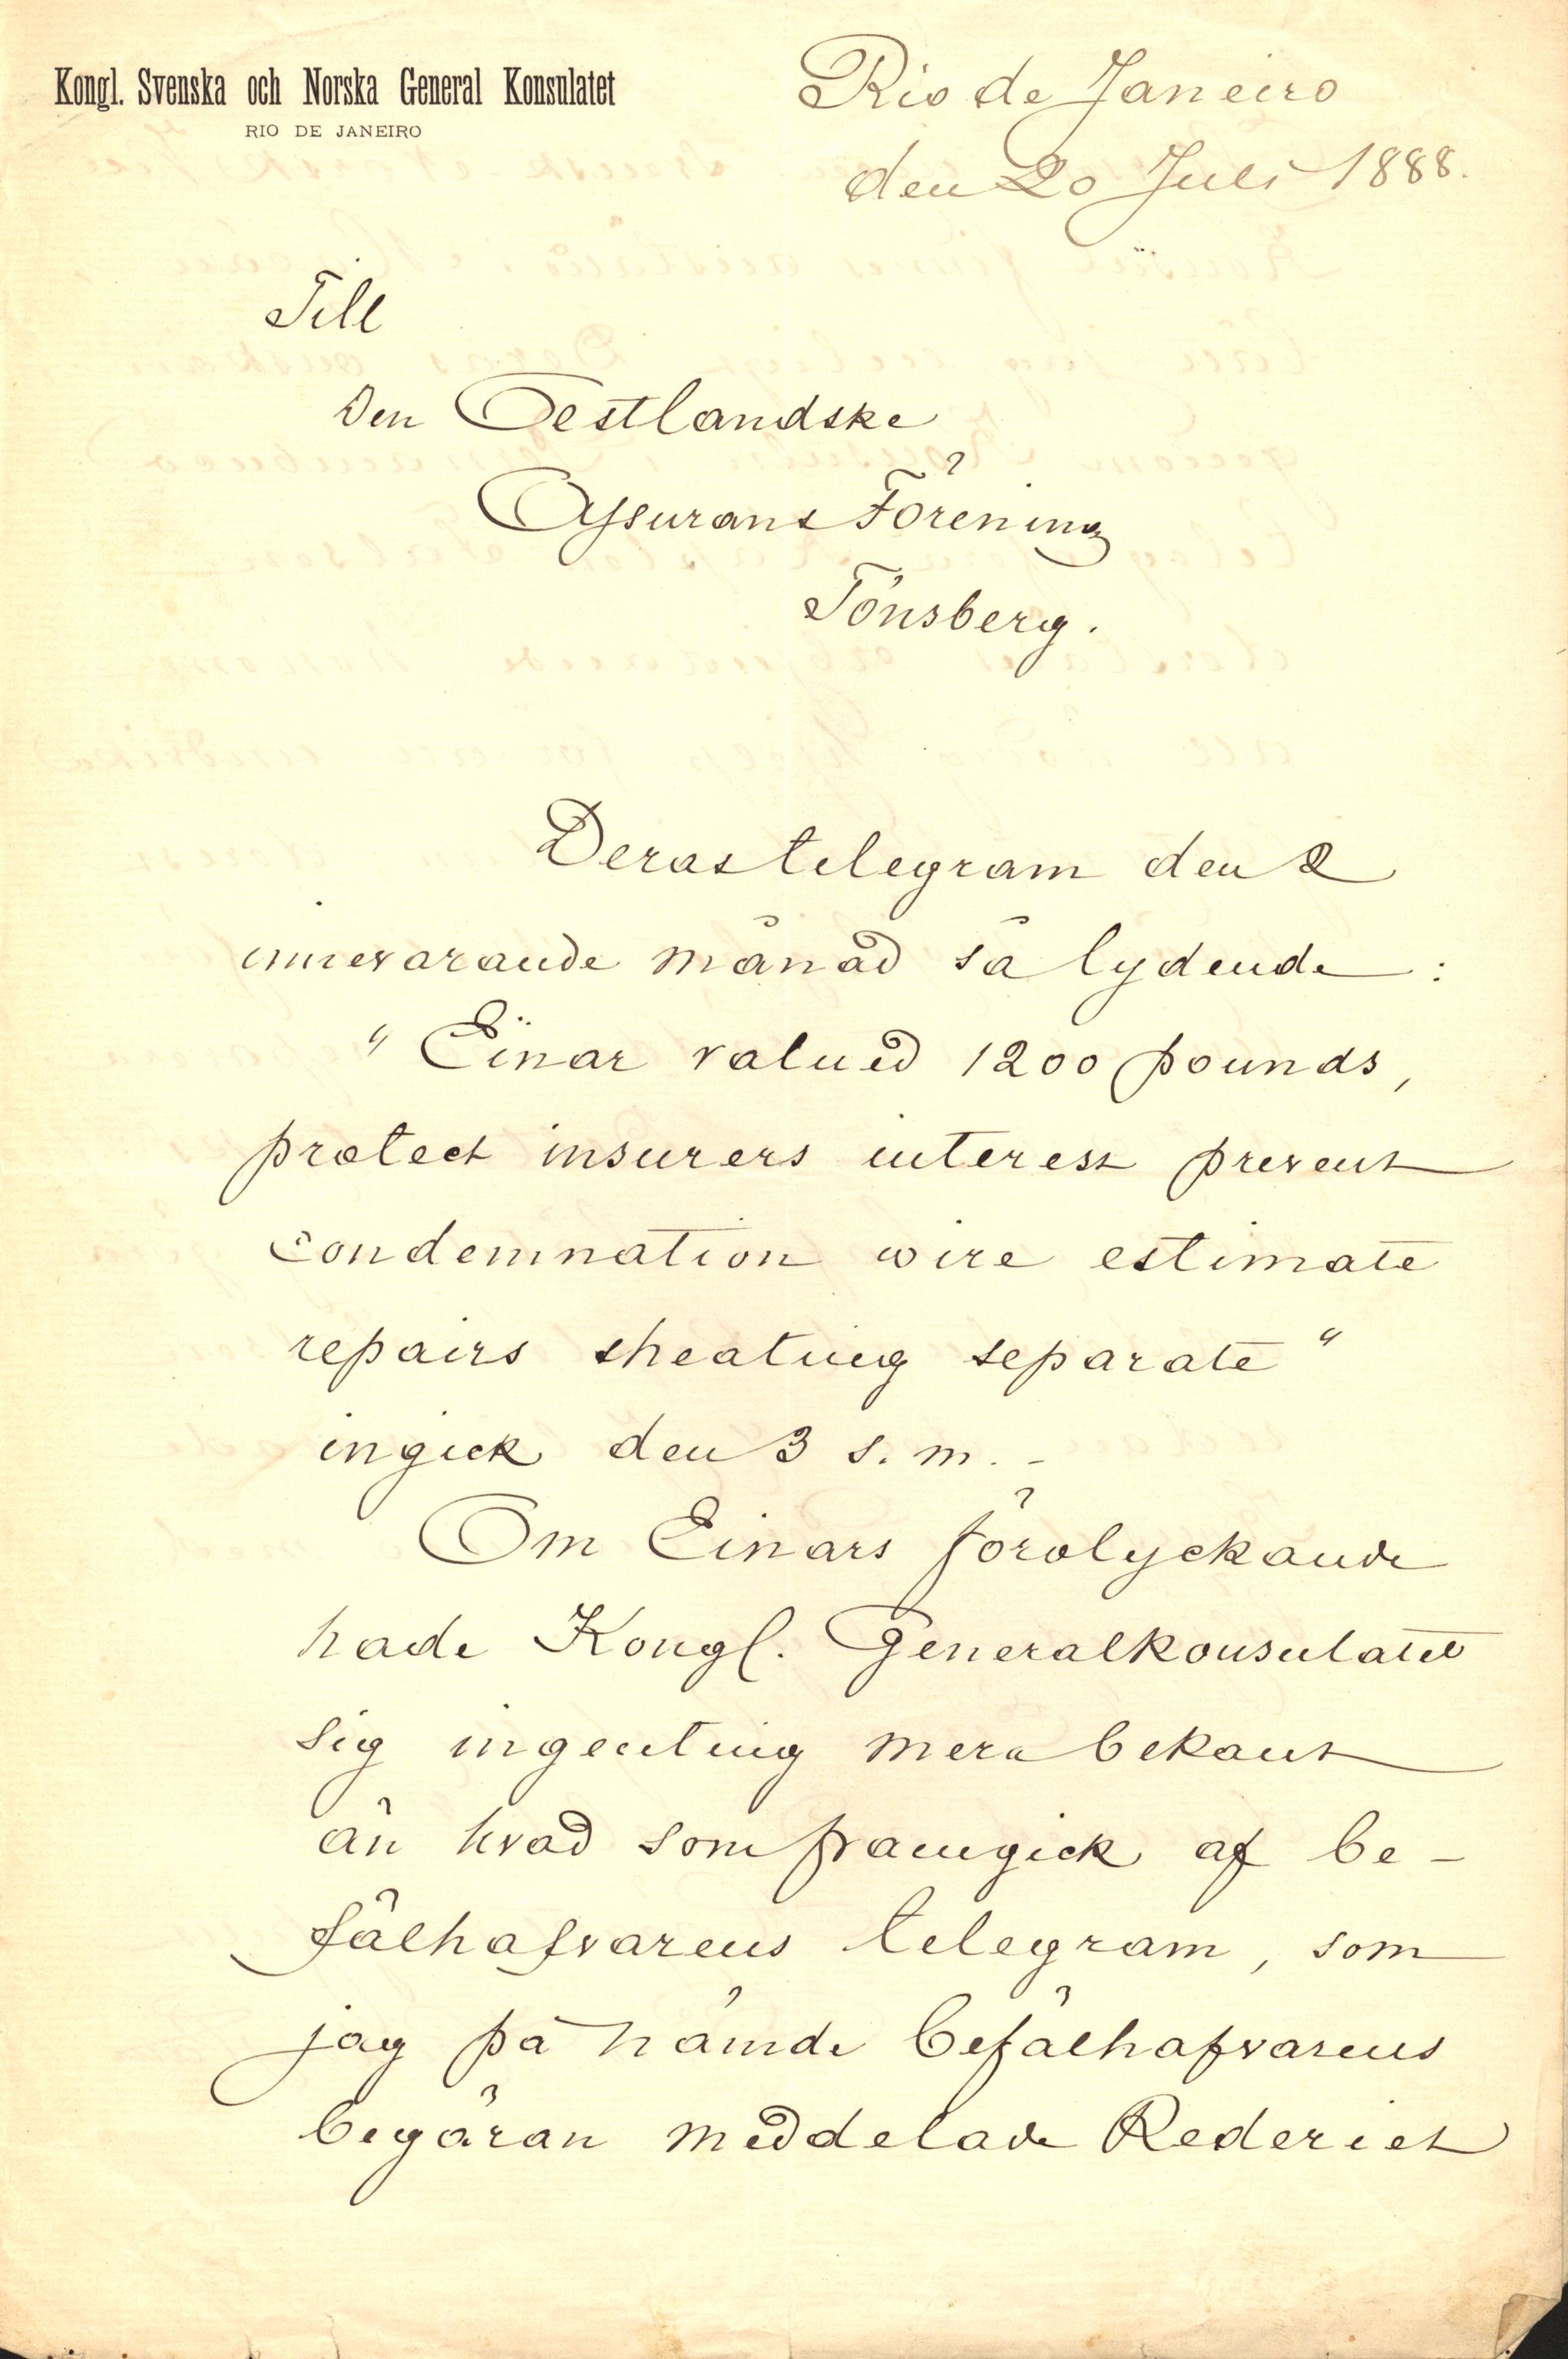 Kongl. Svenska och Norska General Konsulatet
RIO DE JANEIRO
Rio de Janeiro
den 20 Juli 1888.
Till
Den Oestlandske
Assurans Förening
Tönsberg.
Deras telegram den 2
innevarande månad så lydende :
"Einar valued 1200 pounds,
protect insurers interest prevent
condemnation wire estimate
repairs sheating separate"
ingick den 3 s. m. -
Om Einars förolyckande
hade Kongl. Generalkonsulatet
sig ingenting mera bekant
än hvad som framgick af be-
fälhafvarens telegram, som
jag på nämde befälhafvarens
begäran meddelade Rederiet